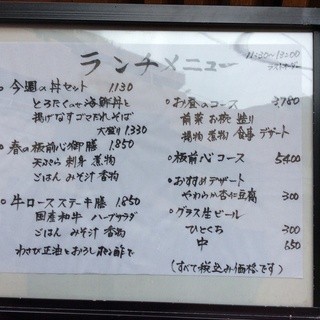 ランチメニュー
11:30~13:00
ラストオーダー
。今週の丼セット 1130
とろたくのせ海鮮丼と
揚げなすごまだれそば
大盛り 1.330
。春の板前心御膳 1.850
天ぷら 刺身 煮物
ごはん みそ汁 香物
。牛ロースステーキ膳 1.850
国産和牛 ハーブサラダ
ごはん みそ汁 香物
わさび正油とおろしポン酢で
。お昼のコース 3.780
前菜 お椀 造り
揚物 煮物 食事 デザート
。板前心コース 5400
。おすすめデザート
やわらか杏仁豆腐 300
。グラス生ビール
ひとくち 300
中 650
(すべて税込み価格です)